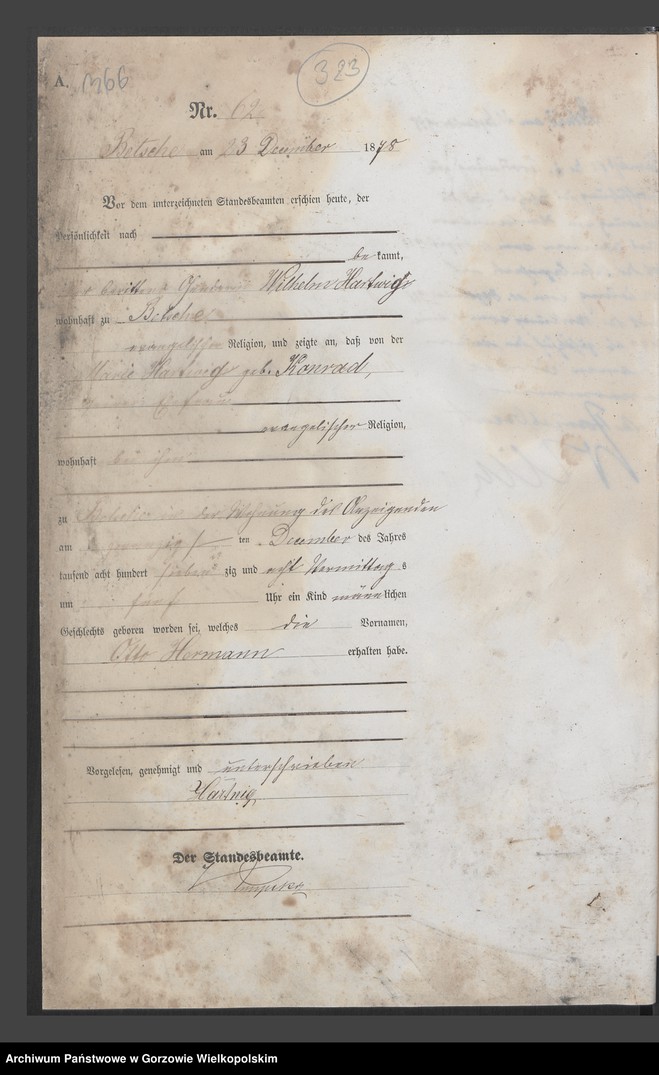 A. 1366
323
Nr. 62
Betsche am 23 December 1878
Vor dem unterzeichneten Standesbeamten erschien heute, der
Persönlichkeit nach
be kannt,
der berittene Wilhelm Hartwig
wohnhaft zu Betsche
evangelischer Religion, und zeigte an, daß von der
Marie Hartwig geb. Konrad,
seiner Ehefrau
evangelischer Religion,
wohnhaft bei ihm
zu Betsche in der Wohnung des Anzeigenden
am zwanzigsten December des Jahres
tausend acht hundert sieben zig und acht Vormittag s
um fünf Uhr ein Kind männlichen
Geschlechts geboren worden sei, welches die Vornamen,
Otto Hermann erhalten habe.
Vorgelesen, genehmigt und unterschrieben
Hartwig
Der Standesbeamte.
Archiwum Państwowe w Gorzowie Wielkopolskim